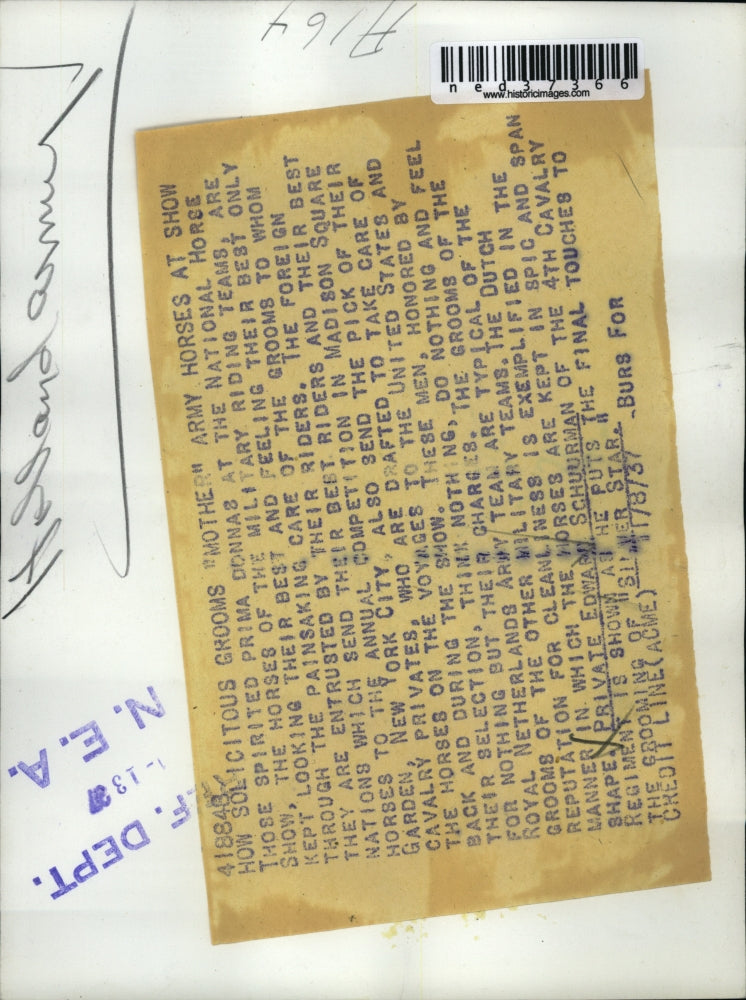 A1164
ned37366
www.historicimages.com
418848
HOW SOLICITOUS GROOMS "MOTHER" ARMY HORSES AT SHOW
THOSE SPIRITED PRIMA DONNAS AT THE NATIONAL HORSE
SHOW, THE HORSES OF THE MILITARY RIDING TEAMS, ARE
KEPT LOOKING THEIR BEST AND FEELING THEIR BEST ONLY
THROUGH THE PAINSAKING CARE OF THE GROOMS TO WHOM
THEY ARE ENTRUSTED BY THEIR RIDERS. THE FOREIGN
NATIONS WHICH SEND THEIR BEST RIDERS AND THEIR BEST
HORSES TO THE ANNUAL COMPETITION IN MADISON SQUARE
GARDEN, NEW YORK CITY, ALSO SEND THE PICK OF THEIR
CAVALRY PRIVATES, WHO ARE DRAFTED TO TAKE CARE OF
THE HORSES ON THE VOYAGES TO THE UNITED STATES AND
BACK AND DURING THE SHOW. THESE MEN, HONORED BY
THEIR SELECTION, THINK NOTHING, DO NOTHING AND FEEL
FOR NOTHING BUT THEIR CHARGES. THE GROOMS OF THE
ROYAL NETHERLANDS ARMY TEAM ARE TYPICAL OF THE
GROOMS OF THE OTHER MILITARY TEAMS. THE DUTCH
REPUTATION FOR CLEANLINESS IS EXEMPLIFIED IN THE
MANNER IN WHICH THE HORSES ARE KEPT IN SPIC AND SPAN
SHAPE. PRIVATE EDWARD SCHUURMAN OF THE 4TH CAVALRY
REGIMENT IS SHOWN AS HE PUTS THE FINAL TOUCHES TO
THE GROOMING OF "SILVER STAR."
CREDIT LINE (ACME) 11/8/37 - BURS FOR
N. E. A.
F. DEPT.